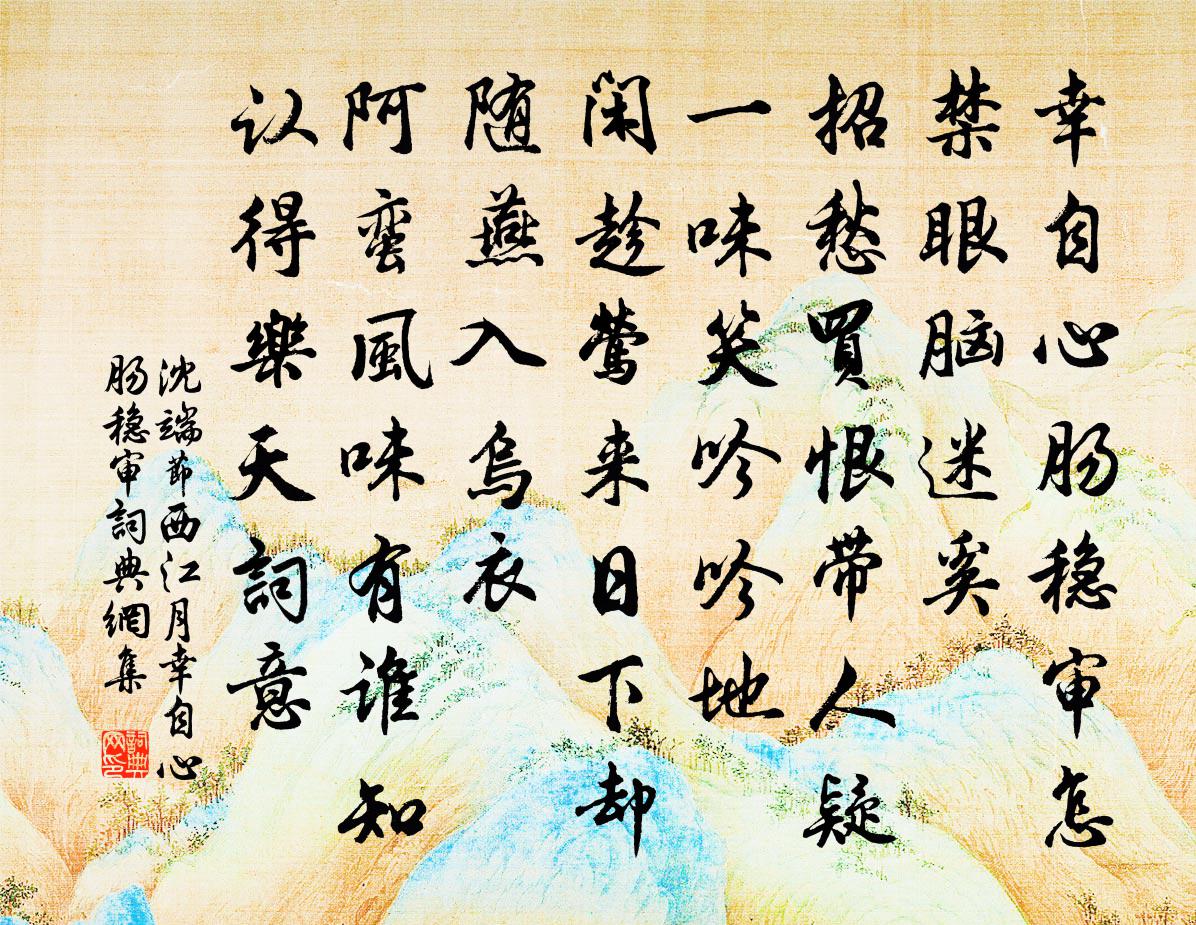 幸自心肠稳审怎
禁眼脑迷奚
招愁買恨带人疑
一味笑吟吟地
闲趁莺来日下却
随燕入烏衣
阿蛮風味有谁知
认得樂天詞意
沈端節西江月幸自心
肠稳审詞典網集
詞典
网印